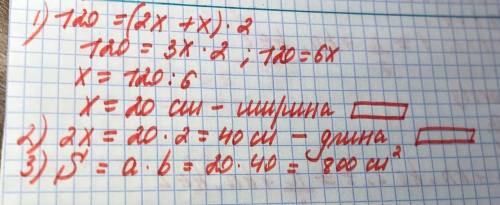 1) 120 = (2x + x) · 2
120 = 3x · 2 ; 120 = 6x
x = 120 : 6
x = 20 см – ширина
2) 2x = 20 · 2 = 40 см – длина
3) S = a · b = 20 · 40 = 800 см²